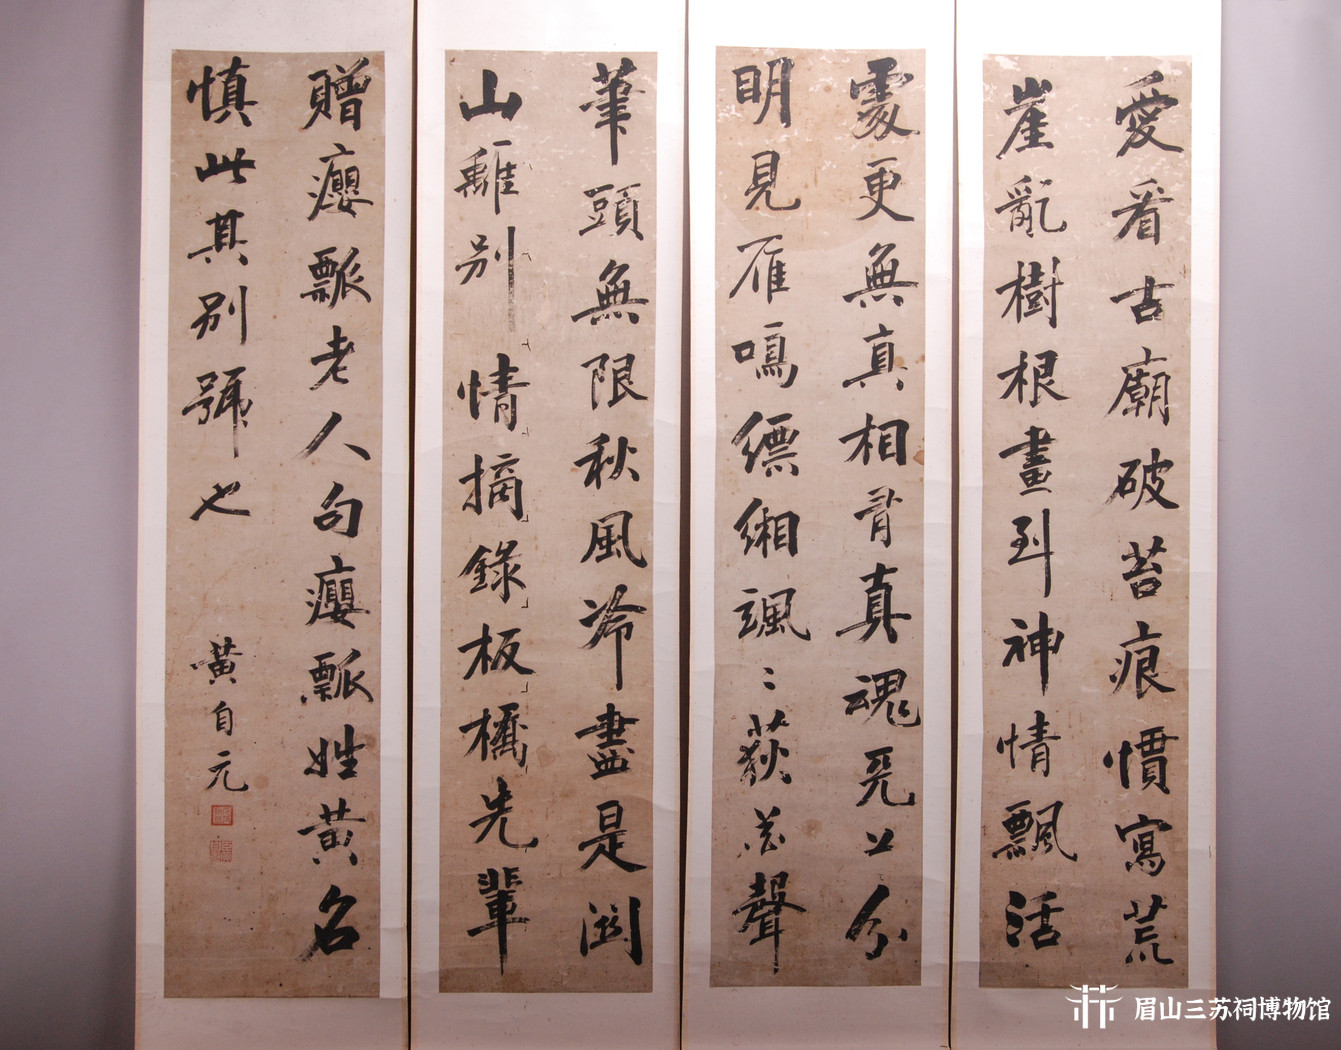 愛看古廟破苔痕慣寫荒
崖亂樹根畫到神情飄活
處更無真相有真魂凭〻分
明見雁鳴縹緗颯〻荻花聲
筆頭無限秋風冷盡是關
山離別情摘錄板橋先輩
贈癭瓢老人句癭瓢姓黃名
慎此其別號也
黃自元
眉山三苏祠博物馆